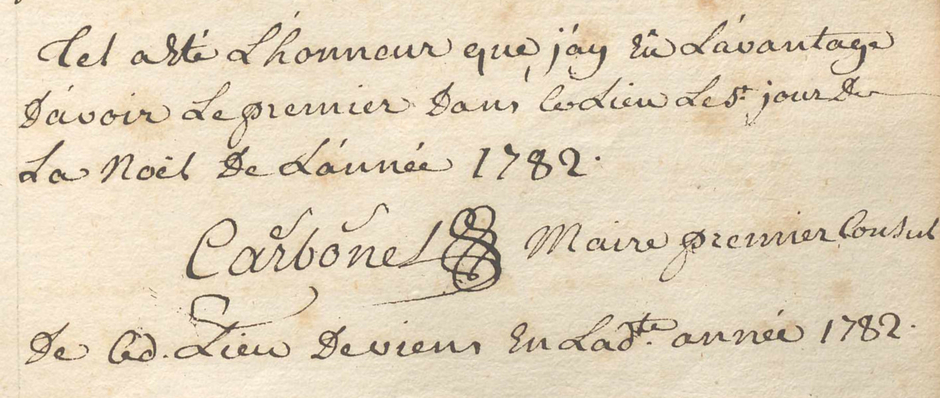 Tel a Eté L'honneur que j'ay Eû L'avantage
D'avoir Le premier Dans Ce Lieu Le St. jour De
La Noël De L'année 1782.
Carbonel Maire premier Consul
De Ced. Lieu Deviens En Ladte. année 1782.